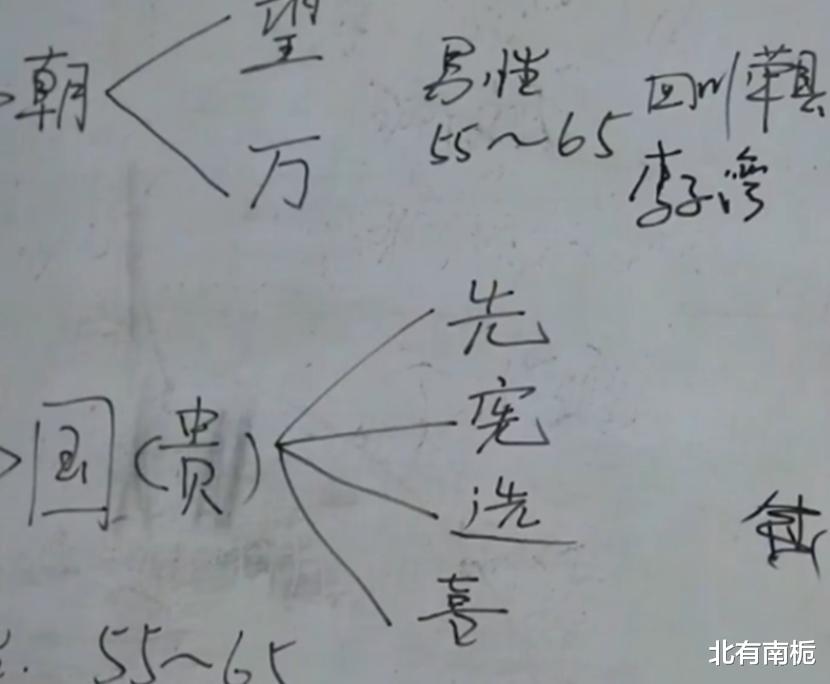 望
朝
万
男性
55~65
四川荣县
李子湾
先
宪
国(贵)
选
喜
55~65
北有南栀